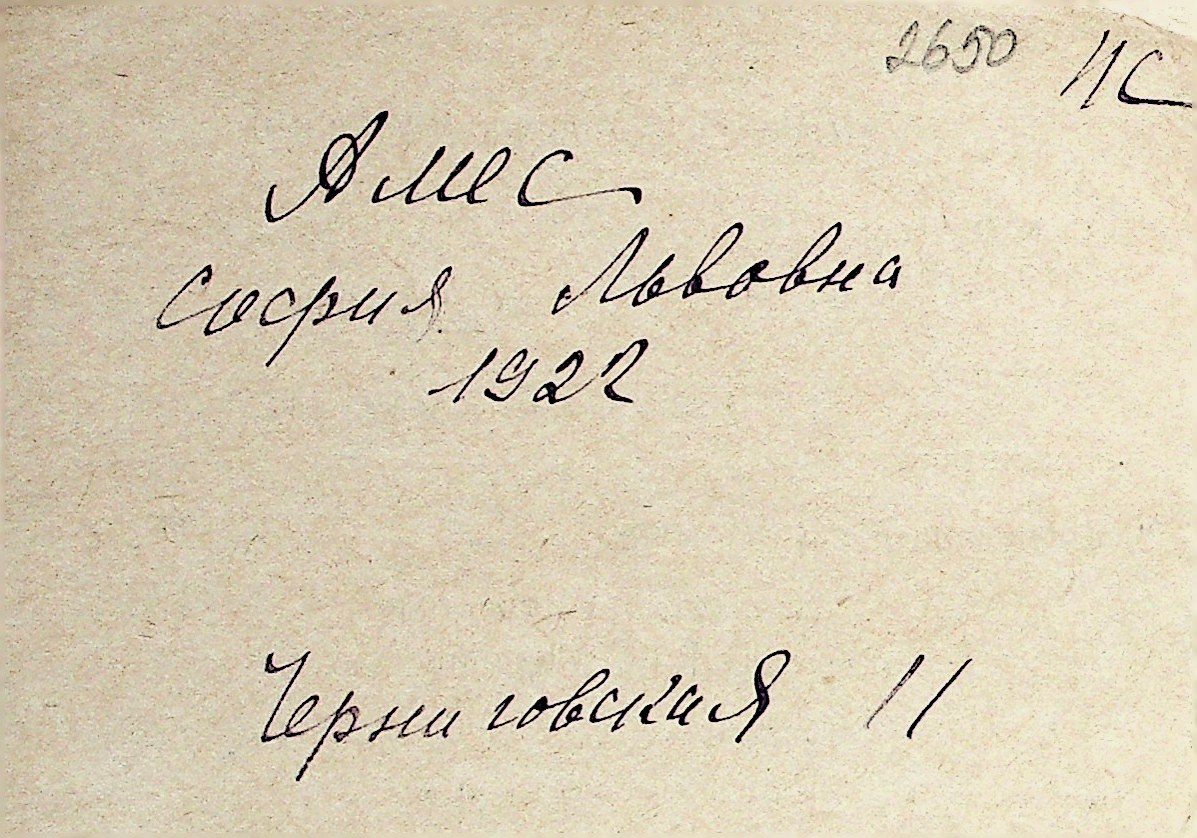 2650 ИС
Амес
София Львовна
1922
Черниговская 11